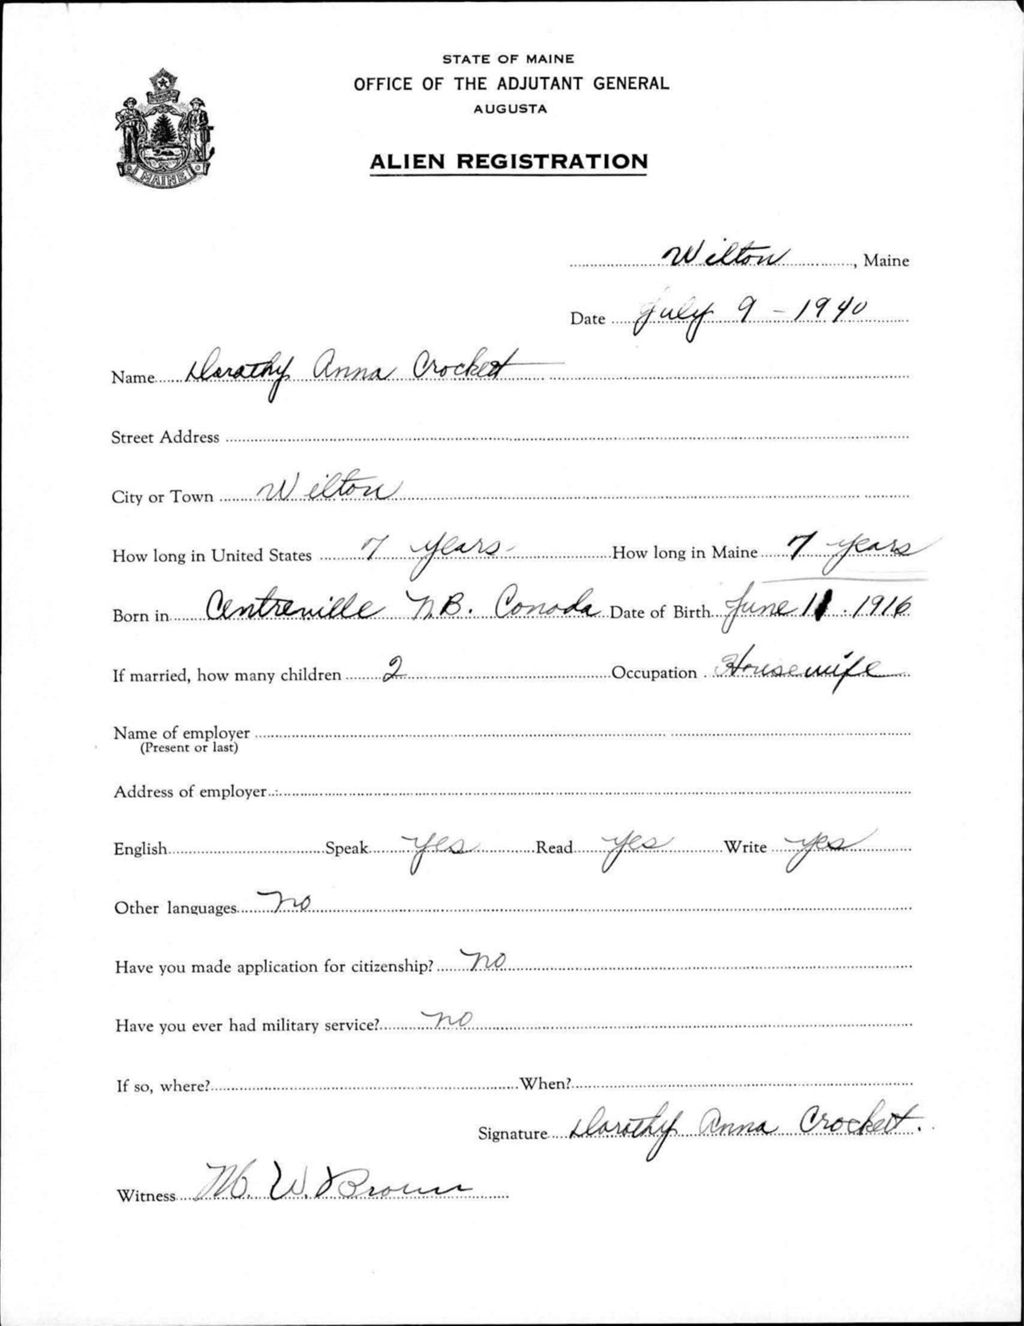 STATE OF MAINE
OFFICE OF THE ADJUTANT GENERAL
AUGUSTA
ALIEN REGISTRATION
MAINE
Wilton, Maine
Date July 9 - 1940
Name Dorathy Anna Crockett
Street Address
City or Town Wilton
How long in United States 7 years How long in Maine 7 years
Born in Centreville N.B. Canada Date of Birth June 11. 1916
If married, how many children 2 Occupation Housewife
Name of employer
(Present or last)
Address of employer
English Speak yes Read yes Write yes
Other languages no
Have you made application for citizenship? no
Have you ever had military service? no
If so, where? When?
Signature Dorathy Anna Crockett.
Witness M. W. Brown